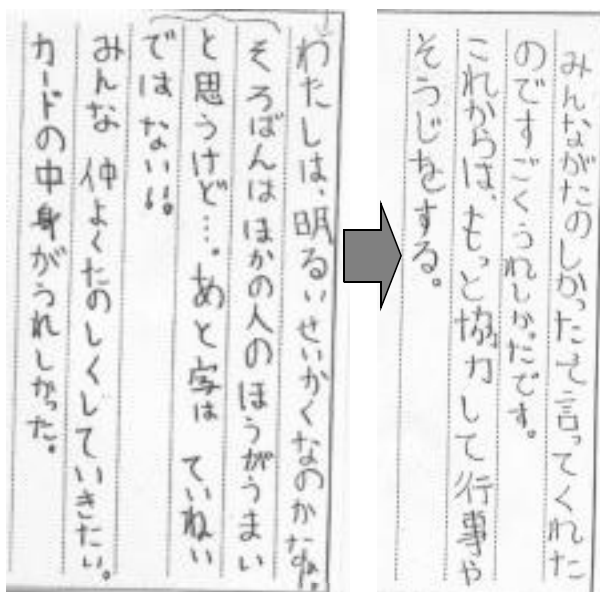 わたしは、明るいせいかくなのかなぁ。
そろばんはほかの人のほうがうまい
と思うけど…。あと字は ていねい
では ない!!。
みんな 仲よくたのしくしていきたい。
カードの中身がうれしかった。
みんながたのしかったて言ってくれた
のですごくうれしかったです。
これからは、もっと協力して行事や
そうじをする。